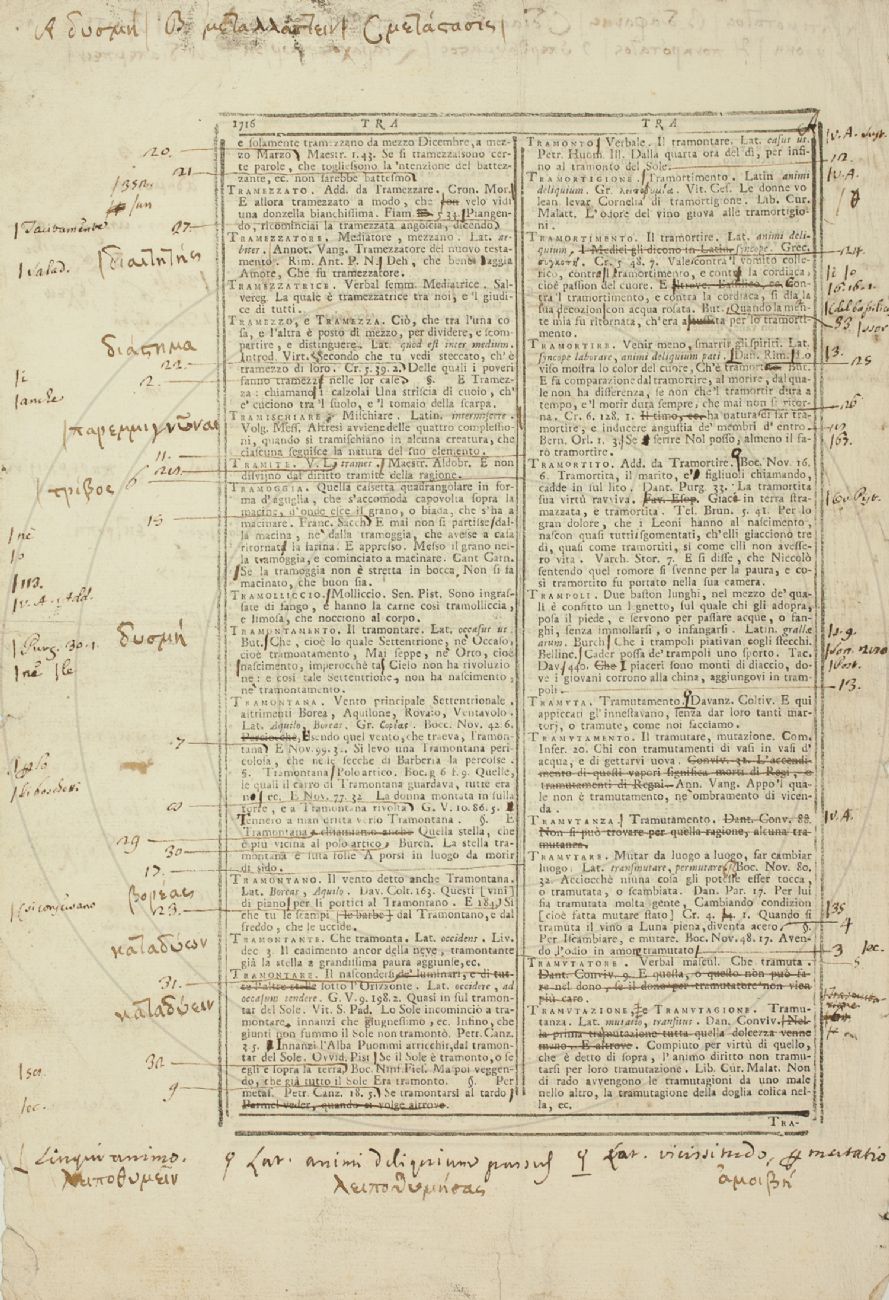 A δυσμή | B μεταλλάττειν | C μετάστασις |
1716 TRA TRA
e solamente tramezzano da mezzo Dicembre, a mez-
zo Marzo Maestr. 1. 43. Se si tramezzaisono cer-
te parole, che togliessono la 'ntenzione del battez-
zante, ec. non sarebbe battesimo
TRAMEZZATO. Add. da Tramezzare. Cron. Mor.
E allora tramezzato a modo, che velo vidi
una donzella bianchissima. Fiam. 5. 33. Piangen-
do, ricominciai la tramezzata angoscia, dicendo
TRAMEZZATORE. Mediatore, mezzano. Lat. ar-
biter. Annot. Vang. Tramezzatore del nuovo testa-
mento. Rim. Ant. P. N. Deh, che bene aggia
Amore, Che fu tramezzatore.
TRAMEZZATRICE. Verbal femm. Mediatrice. Sal-
vereg. La quale è tramezzatrice tra noi, e 'l giudi-
ce di tutti.
TRAMEZZO, e TRAMEZZA. Ciò, che tra l'una co
sa, e l'altra è posto di mezzo, per dividere, e scom-
partire, e distinguere. Lat. quod est inter medium.
Introd. Virt. Secondo che tu vedi steccato, ch'è
tramezzo di loro. Cr. 5. 39. 2. Delle quali i poveri
fanno tramezzi nelle lor case §. E Tramez-
za: chiamano i calzolai Una striscia di cuoio, ch'
e' cuciono tra 'l suolo, e 'l tomaio della scarpa.
TRAMISCHIARE. Mischiare. Latin. interminiscere.
Volg. Mess. Altresì avviene delle quattro complessio-
ni, quando si tramischiano in alcuna creatura, che
ciascuna seguisce la natura del suo elemento.
TRAMITE. V. L. trames. Maestr. Aldobr. E non
disviino dal diritto tramite della ragione.
TRAMOGGIA. Quella cassetta quadrangolare in for-
ma d'aguglia, che s'accomoda capovolta sopra la
macine, d'onde esce il grano, o biada, che s'ha a
macinare. Franc. Sacch. E mai non si partisse dal-
la macina, nè dalla tramoggia, che avesse a casa
ritornata la farina. E appresso. Messo il grano nel-
la tramoggia, e cominciato a macinare. Cant Carn.
Se la tramoggia non è stretta in bocca, Non si fa
macinato, che buon sia.
TRAMOLLICCIO. Molliccio. Sen. Pist. Sono ingras-
sate di fango, e hanno la carne così tramolliccia,
e limosa, che nocciono al corpo.
TRAMONTAMENTO. Il tramontare. Lat. occasus us.
But. Che, cioè lo quale Settentrione, nè Occaso,
cioè tramontamento, Mai seppe, nè Orto, cioè
nascimento, imperocchè tal Cielo non ha rivoluzio
ne: e così tale Settentrione, non ha nascimento,
nè tramontamento.
TRAMONTANA. Vento principale Settentrionale,
altrimenti Borea, Aquilone, Rovaio, Ventavolo.
Lat. Aquilo, Boreas. Gr. Bocc. Nov. 42. 6.
Perciocchè, Essendo quel vento, che traeva, Tramon-
tana E Nov. 99. 3. Si levò una Tramontana peri-
colosa, che nelle secche di Barberia la percosse.
§. Tramontana Polo artico. Boc. g 6 f. 9. Quelle,
le quali il carro di Tramontana guardava, tutte eran
no ec. E Nov. 77. 32. La donna montata in sulla
torre, e a Tramontana rivolta G. V. 10. 86. 5.
Tennero a man dritta verso Tramontana. §. E
Tramontana chiamiamo anche Quella stella, che
è più vicina al polo artico. Burch. La stella tra-
montana è tuta folle A porsi in luogo da morir
di sido.
TRAMONTANO. Il vento detto anche Tramontana.
Lat. Boreas, Aquilo. Dav. Colt. 163. Questi [vini]
di piano per li portici al Tramontano. E 184. Si
che tu le scampi [le barbe] dal Tramontano, e dal
freddo, che le uccide.
TRAMONTANTE. Che tramonta. Lat. occidens. Liv.
dec 3. Il cadimento ancor della neve, tramontante
già la stella a grandissima paura aggiunse, ec.
TRAMONTARE. Il nascondersi de' luminari, e di tut-
te l'altre stelle sotto l'Orizzonte. Lat. occidere, ad
occasum tendere. G. V. 9. 198. 2. Quasi in sul tramon-
tar del Sole. Vit. S. Pad. Lo Sole incominciò a tra-
montare, innanzi che giugnessimo, ec. Infino, che
giunti non fummo il sole non tramontò. Petr. Canz.
3. 5. Innanzi l'Alba Puommi arricchir, dal tramon-
tar del Sole. Ovvid. Pist Se il Sole è tramonto, o se
egli è sopra la terra, Boc. Ninf. Fies. Ma poi veggen-
do, che già tutto il Sole Era tramonto. §. Per
metaf. Petr. Canz. 18. 5. Se tramontarsi al tardo
Parmel veder, quando si volge altrove.
TRAMONTO. Verbale. Il tramontare. Lat. casus us.
Petr. Huom. Ill. Dalla quarta ora del dì, per infi-
no al tramonto del Sole.
TRAMORTIGIONE. Tramortimento. Latin animi
deliquium. Gr. Vit. Ces. Le donne vo
lean levar Cornelia di tramortigione. Lib. Cur.
Malatt. L'odore del vino giova alle tramortigio-
ni.
TRAMORTIMENTO. Il tramortire. Lat. animi deli-
quium. I Medici gli dicono in Latin. syncope. Grec.
Cr. 5. 48. 7. Vale contra 'l vomito colle-
rico, contra 'l tramortimento, e contra la cordiaca,
cioè passion del cuore. E altrove. Con-
tra 'l tramortimento, e contra la cordiaca, si dia la
sua decozion con acqua rosata. But. Quando la men-
te mia fu ritornata, ch'era per lo tramorti-
mento.
TRAMORTIRE. Venir meno, smarrir gli spiriti. Lat.
syncope laborare, animi deliquium pati. Dan. Rim. Lo
viso mostra lo color del cuore, Ch'è tramor. But.
E fa comparazion dal tramortire, al morire, dal qua-
le non ha differenza, se non che 'l tramortir dura a
tempo, e 'l morir dura sempre, che mai non si ritor-
na. Cr. 6. 128. 1. ha natura di far tra-
mortire, e inducere angustia de' membri d'entro
Bern. Orl. 1. 3. Se ferire Nol posso, almeno il fa-
rò tramortire.
TRAMORTITO. Add. da Tramortire. Boc. Nov. 16.
6. Tramortita, il marito, e' figliuoli chiamando,
cadde in sul lito. Dant. Purg. 33. La tramortita
sua virtù ravviva. Fav. Esop. Giace in terra stra-
mazzata, e tramortita. Tes. Brun. 5. 41. Per lo
gran dolore, che i Leoni hanno al nascimento,
nascon quasi tutti sgomentati, ch'elli giacciono tre
dì, quasi come tramortiti, sì come elli non avesse-
ro vita. Varch. Stor. 7. E si disse, che Niccolò
sentendo quel romore si svenne per la paura, e co-
sì tramortito fu portato nella sua camera.
TRAMPOLI. Due baston lunghi, nel mezzo de' qua-
li è confitto un legnetto, sul quale chi gli adopra,
posa il piede, e servono per passare acque, o fan-
ghi, senza immollarsi, o infangarsi. Latin. grallæ
arum. Burch. Che i trampoli piativan cogli stecchi.
Bellinc. Cader possa de' trampoli uno sporto. Tac.
Dav. 440. Che I piaceri sono monti di diaccio, do-
ve i giovani corrono alla china, aggiungovi in tram-
poli.
TRAMUTA. Tramutamento. Davanz. Coltiv. E qui
appiccati gl'innestavano, senza dar loro tanti mar-
torj, o tramute, come noi facciamo.
TRAMUTAMENTO. Il tramutare, mutazione. Com.
Infer. 20. Chi con tramutamenti di vasi in vasi d'
acqua, e di gettarvi uova. Conviv. 32. L'accendi-
mento di questi vapori significa morti di Regi, e
tramutamenti di Regni. Ann. Vang. Appo 'l qua-
le non è tramutamento, nè ombramento di vicen-
da.
TRAMUTANZA. Tramutamento. Dant. Conv. 88.
Non si può trovare per quella ragione, alcuna tra-
mutanza.
TRAMUTARE. Mutar da luogo a luogo, far cambiar
luogo. Lat. transmutare, permutare. Boc. Nov. 80.
32. Acciocchè niuna cola gli potesse esser tocca,
o tramutata, o scambiata. Dan. Par. 17. Per lui
fia tramutata molta gente, Cambiando condizion
[cioè fatta mutare stato] Cr. 4. 1. Quando si
tramuta il vino a Luna piena, diventa aceto. §.
Per Iscambiare, e mutare. Boc. Nov. 48. 17. Aven-
do l'odio in amor tramutato
TRAMUTATORE. Verbal mascul. Che tramuta.
Dant. Conviv. 9. E questa, o quello non può fa-
re nel dono, se il dono per tramutatore non vien
più caro.
TRAMUTAZIONE, e TRAMUTAGIONE. Tramu-
tanza. Lat. mutatio, transitus. Dan. Conviv. Nel-
la prima tramutazione tutta quella dolcezza venne
meno. E altrove. Compiuto per virtù di quello,
che è detto di sopra, l'animo diritto non tramu-
tarsi per loro tramutazione. Lib. Cur. Malat. Non
di rado avvengono le tramutagioni da uno male
nello altro, la tramutagione della doglia colica nel-
la, ec.
TRA-
20.
21
27.
Tautamente
διαιτητής
διάστημα
22.
2.
anche
παρεμμιγνύναι
11.
τρίβος 6
15
nè
lo
113.
V. A. Add.
δυσμή
Purg. 30. 1
nè le
7
8
29
30
17.
βορέας
23.
καταδύων
31.
καταδύειν
32.
9
ec.
12.
V. A.
24.
del basilico
33
13.
25
26
163.
60. Pist.
13.
V. A.
135
4
3 ec.
5
Linqui animo.
λειποθυμεῖν
Lat. animi deliquium passus
λειποθυμήσας
Lat. vicissitudo, mutatio
ἀμοιβή